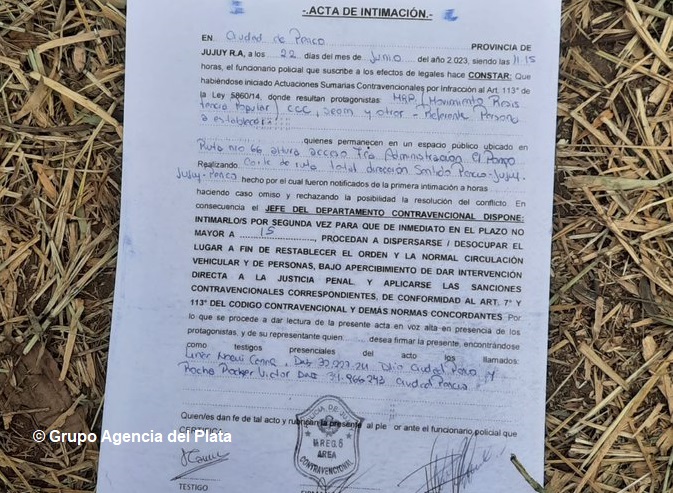 -.ACTA DE INTIMACIÓN.-
EN Ciudad de Perico PROVINCIA DE
JUJUY R.A, a los 22 días del mes de Junio del año 2.023, siendo las 11:15
horas, el funcionario policial que suscribe a los efectos de legales hace CONSTAR: Que
habiéndose iniciado Actuaciones Sumarias Contravencionales por Infracción al Art. 113° de
la Ley 5860/14, donde resultan protagonistas: MRP / Movimiento Resis
tencia Popular / CCC, Seom y otros - Referente Persona
a establecer
quienes permanecen en un espacio público ubicado en
Ruta Nro 66, altura acceso Administración El Pongo
Realizando Corte de ruta total dirección Sentido Perico-Jujuy-
Jujuy-Perico hecho por el cual fueron notificados de la primera intimación a horas
haciendo caso omiso y rechazando la posibilidad la resolución del conflicto. En
consecuencia el JEFE DEL DEPARTAMENTO CONTRAVENCIONAL DISPONE:
INTIMARLO/S POR SEGUNDA VEZ PARA QUE DE INMEDIATO EN EL PLAZO NO
MAYOR A 15, PROCEDAN A DISPERSARSE / DESOCUPAR EL
LUGAR A FIN DE RESTABLECER EL ORDEN Y LA NORMAL CIRCULACIÓN
VEHICULAR Y DE PERSONAS, BAJO APERCIBIMIENTO DE DAR INTERVENCIÓN
DIRECTA A LA JUSTICIA PENAL Y APLICARSE LAS SANCIONES
CONTRAVENCIONALES CORRESPONDIENTES, DE CONFORMIDAD AL ART. 7° Y
113° DEL CODIGO CONTRAVENCIONAL Y DEMÁS NORMAS CONCORDANTES. Por
lo que se procede a dar lectura de la presente acta en voz alta en presencia de los
protagonistas, y de su representante quien: desea firmar la presente, encontrándose
como testigos presenciales del acto los llamados:
Ciudad Perico, y
Victor Ciudad Perico
Quien/es dan fe de tal acto y rubrican la presente al pie or ante el funcionario policial que
CERTIFICA
© Grupo Agencia del Plata
POLICIA DE JUJUY
U.REG.6
AREA
CONTRAVENCIONAL
TESTIGO